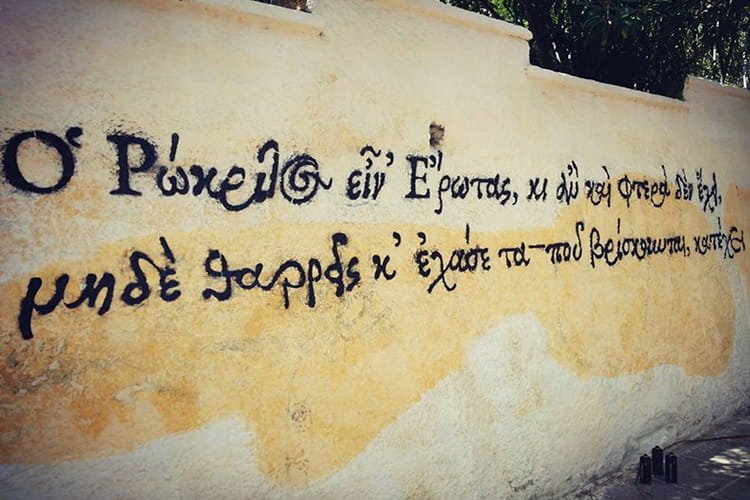 Ὁ Ρώκριτος εἶν' Ἔρωτας, κι ἂν καὶ φτερὰ δὲν ἔχει,
μηδὲ θαρρεῖς κ' ἔχασε τα-ποῦ βρίσκουνται, κατέχει